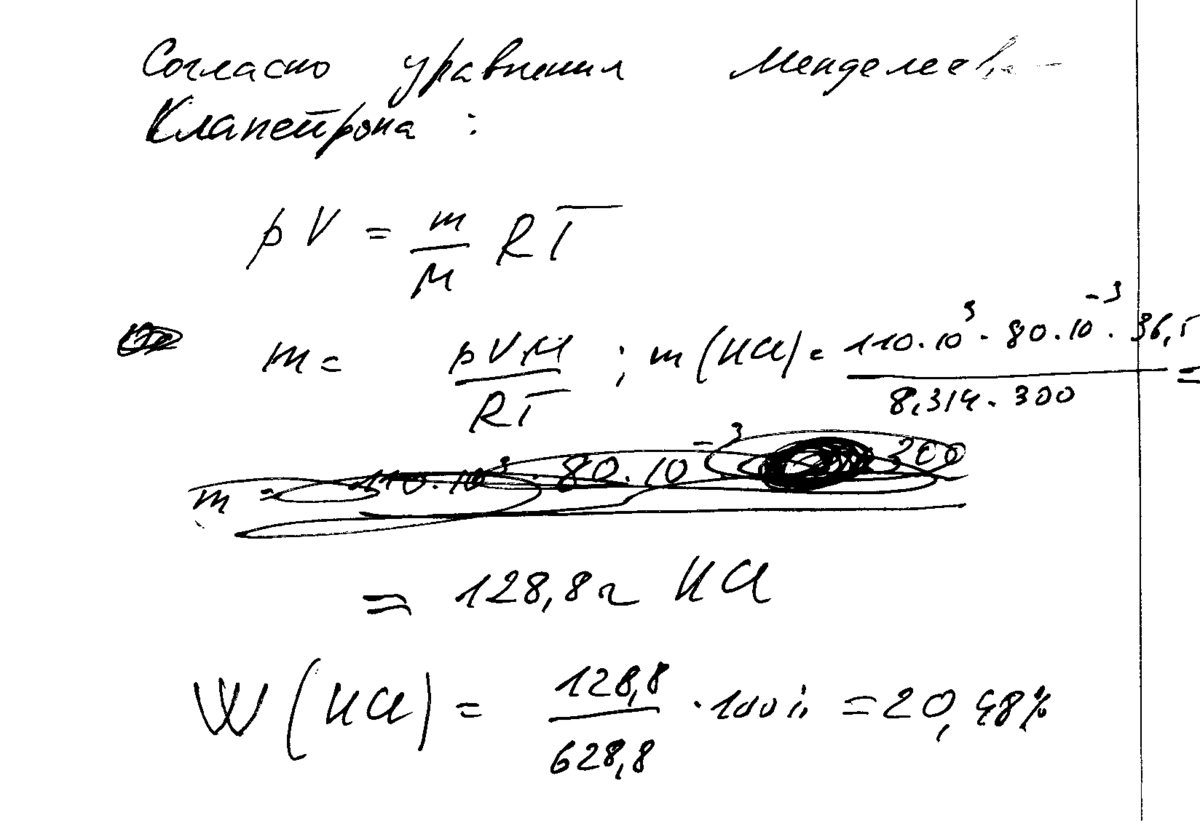 Согласно уравнения Менделеева-
Клапейрона :
pV = m/M RT
m = pVM/RT ; m (HCl) = 110·10³·80·10⁻³·36,5/8,314·300 =
m = 110·10³·80·10⁻³ 300
= 128,8г HCl
W (HCl) = 128,8/628,8 ·100% = 20,48%